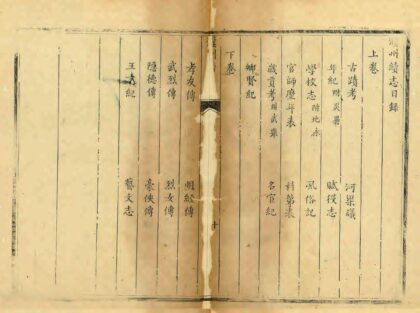 州續志目錄
上卷
古蹟考
河渠議
年紀附災異
賦役志
學校志
風俗記
官師歷年表
科第表
歲貢考
名宦紀
鄉賢紀
下卷
孝友傳
武烈傳
烈女傳
隱德傳
豪俠傳
王
紀
藝文志